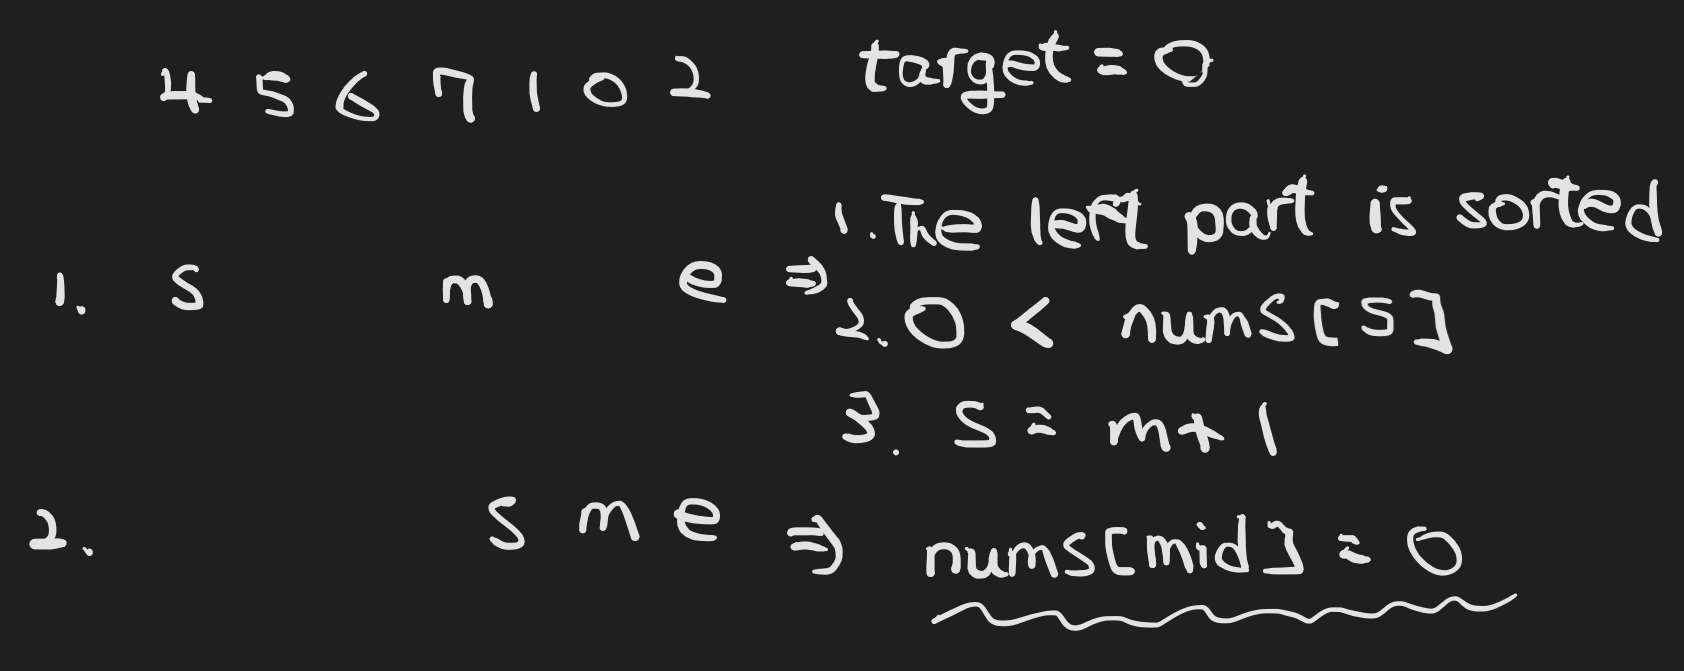 4 5 6 7 1 0 2 target = 0
1. The left part is sorted
1. s m e ⇒
2. 0 < nums[s]
3. s = m + 1
2. s m e ⇒ nums[mid] = 0